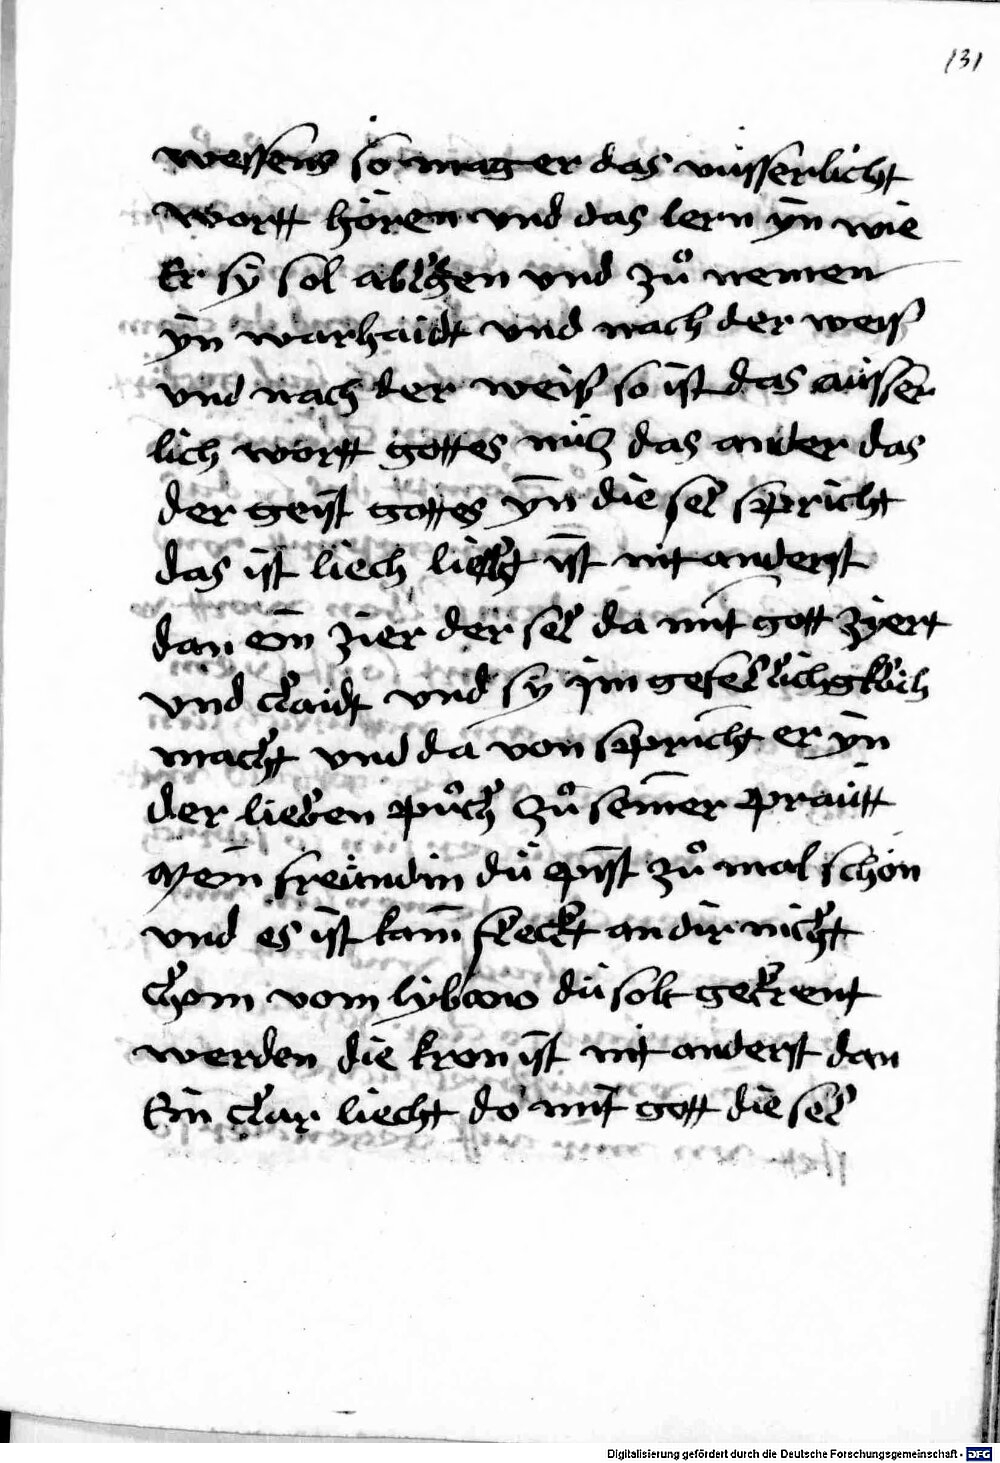 131
wessens so mag er das aüsserlicht
wortt hören vnd das lern yn wie
Er sy sol ablegen vnd zů nemen
yn warhaidt vnd nach der weiß
vnd nach der weiß so ist das aüsser
lich wortt gottes nüz das ander das
der geist gottes yn die sel spricht
das ist liech liecht ist nit anderst
dan ein zier der sel da mit gott zyert
vnd claidt vnd sy jm gefellichglich
macht vnd da von spricht er yn
der lieben půch zů seiner praütt
Mein freündin dü pist zů mal schön
vnd es ist kain fleckt an dir nicht
chom vom lybano dü solt gekrent
werden die kron ist nit anderst dan
Ein clar liecht do mit gott die sel
Digitalisierung gefördert durch die Deutsche Forschungsgemeinschaft - DFG